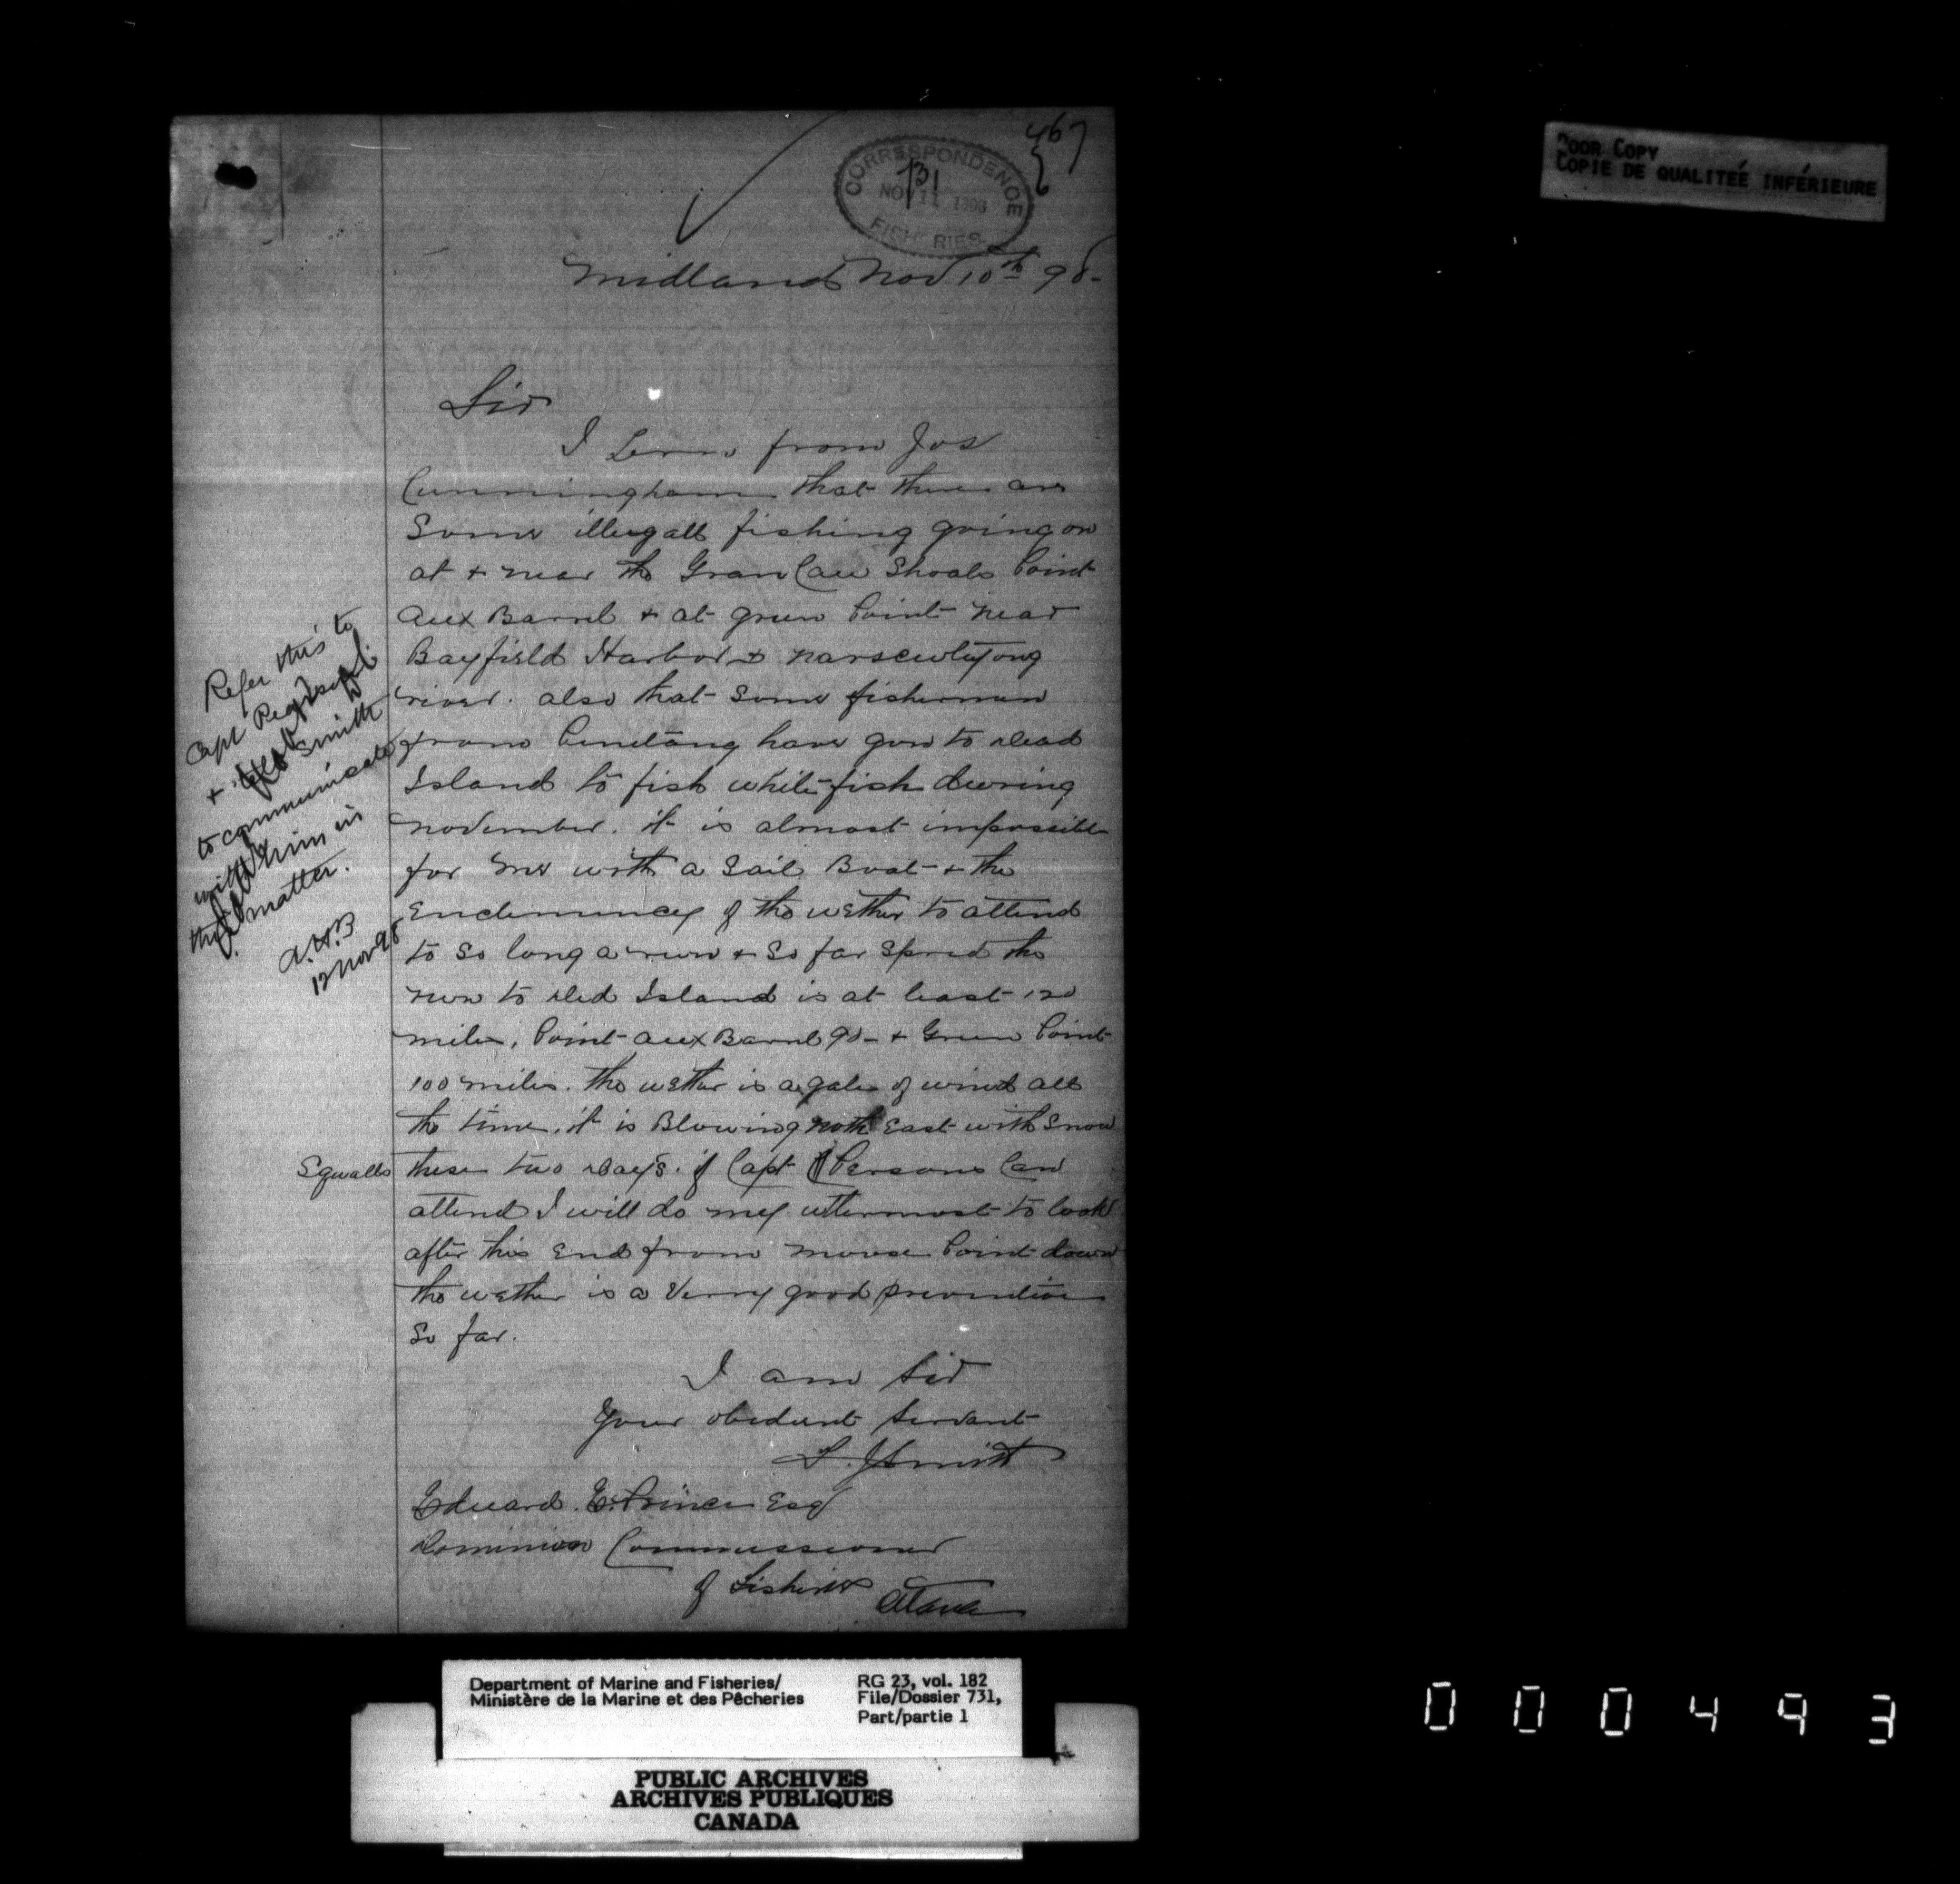 467
CORRESPONDENCE
731
NOV 11 1898
FISHERIES
Midland Nov 10th 98-
Sir
I Lern from Jos
Cunningham that there are
Some illegall fishing going on
at + near the Gran Cau Shoals Point
aux Barrel + at green Point near
Bayfield Harbor +
river. also that some fisherman
from Penetang have gon to dead
Island to fish white fish during
november. it is almost impossible
for me with a Sail Boat + the
Enclemency of the wether to attend
to so long a run + so far spred the
run to ded Island is at least 120
miles, Point aux Barrel 90- + Green Point
100 miles. the wether is a gale of wind all
the time. it is Blowing noth East with Snow
Squalls these two days. if Capt Persons Can
attend I will do my uttermost to look
after this End from moose Point down
the wether is a Verry good prevention
So far.
I am Sir
Your obedient Servant
Edward E. Prince Esq
Dominion Commissioner
of Fisheries Ottawa
Refer this to
Capt
+ Smith
to communicate
with him in
this matter.
12 Nov 98
POOR COPY
COPIE DE QUALITEÉ INFÉRIEURE
Department of Marine and Fisheries/
Ministère de la Marine et des Pêcheries
RG 23, vol. 182
File/Dossier 731,
Part/partie 1
PUBLIC ARCHIVES
ARCHIVES PUBLIQUES
CANADA
000493